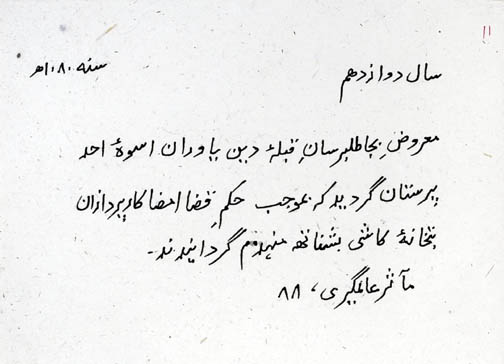 ۱۱
سال دوازدهم
سنه ۱۰۸۰ھ
معروضِ بجاطلبرسانِ قبلهٔ دین یاوران اسوهٔ احد
پرستان گردید که بموجب حکمِ قضا امضا کارپردازان
بتخانهٔ کاشی بشناتهه منهدم گردانیدند۔
مآثر عالمگیری، ۸۸